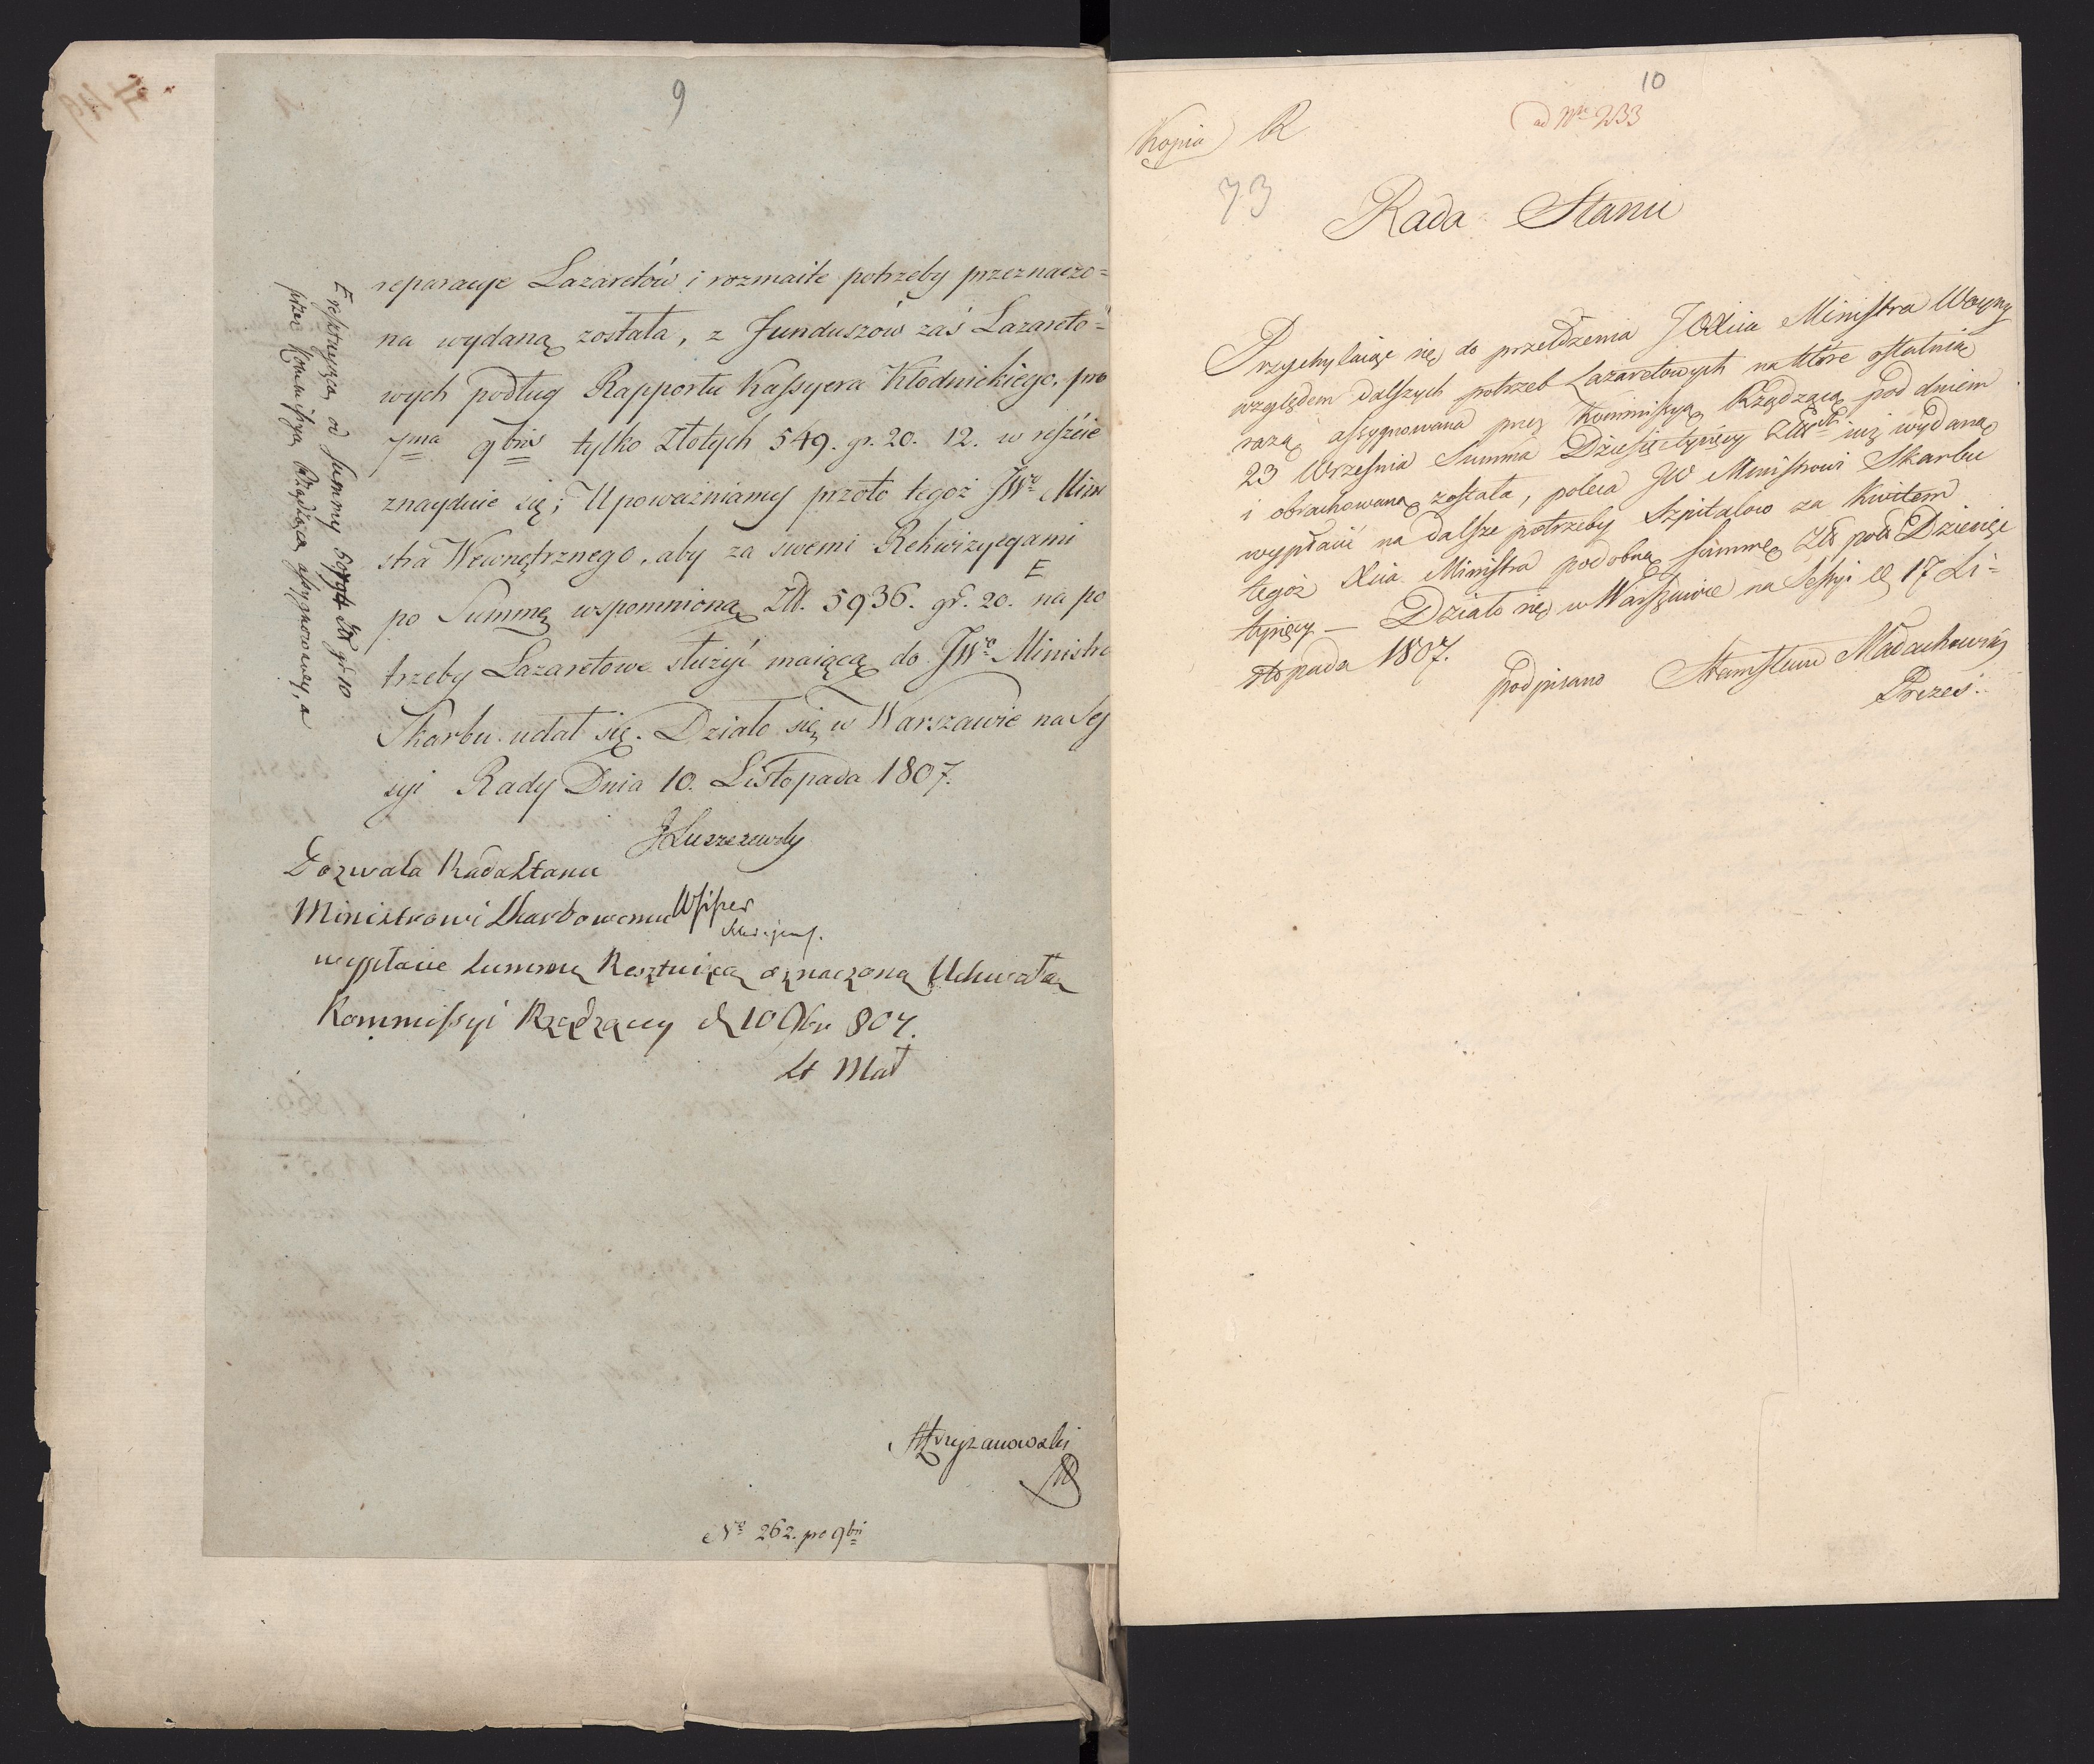 9
reparacye Lazaretów i rozmaite potrzeby przeznaczo=
na wydaną została, z Funduszów zaś Lazareto=
wych podług Rapportu Kassyera Kłodnickiego, pro
7ma 9bris tylko Złotych 549. gr. 20. 12. w reszcie
znayduie się; Upoważniamy przeto tegoż JWo Mini
stra Wewnętrznego, aby za swemi Rekwizycyami
po Summę wspomnioną Zł. 5936. gr. 20. na po
trzeby Lazaretowe służyć maiącą do JWo Ministra
Skarbu udał się. Działo się w Warszawie na Sej
syi Rady Dnia 10. Listopada 1807.
JLuszczewsky
E resztuiącą od Summy gr 10
przez Kommissyą Rządzącą assygnowaney, a
Dozwala Rada Stanu
Ministrowi Skarbowemu
wypłacić Summę Resztuiącą oznaczoną Uchwałą
Kommissyi Rządzącey d 10 9br 807.
St Mał
Krzyżanowski
No 262. pro 9bri
10
ad Nr 233
Kopia R
73
Rada Stanu
Przychylaiąc się do przełożenia JOXcia Ministra Woyny
względem dalszych potrzeb Lazaretowych na które ostatnią
razą assygnowana przez Kommissyą Rządzącą pod dniem
23 Września Summa Dziesięć tysięcy Złł iuż wydaną
i obrachowaną została, poleca JW Ministrowi Skarbu
wypłacić na dalsze potrzeby Szpitalow za Kwitem
tegoż Xcia Ministra podobną summę Złł pols Dziesięć
tysięcy — Działo się w Warszawie na Sessyi d 17 Li=
stopada 1807.
podpisano Stanisław Małachowski
Prezes.